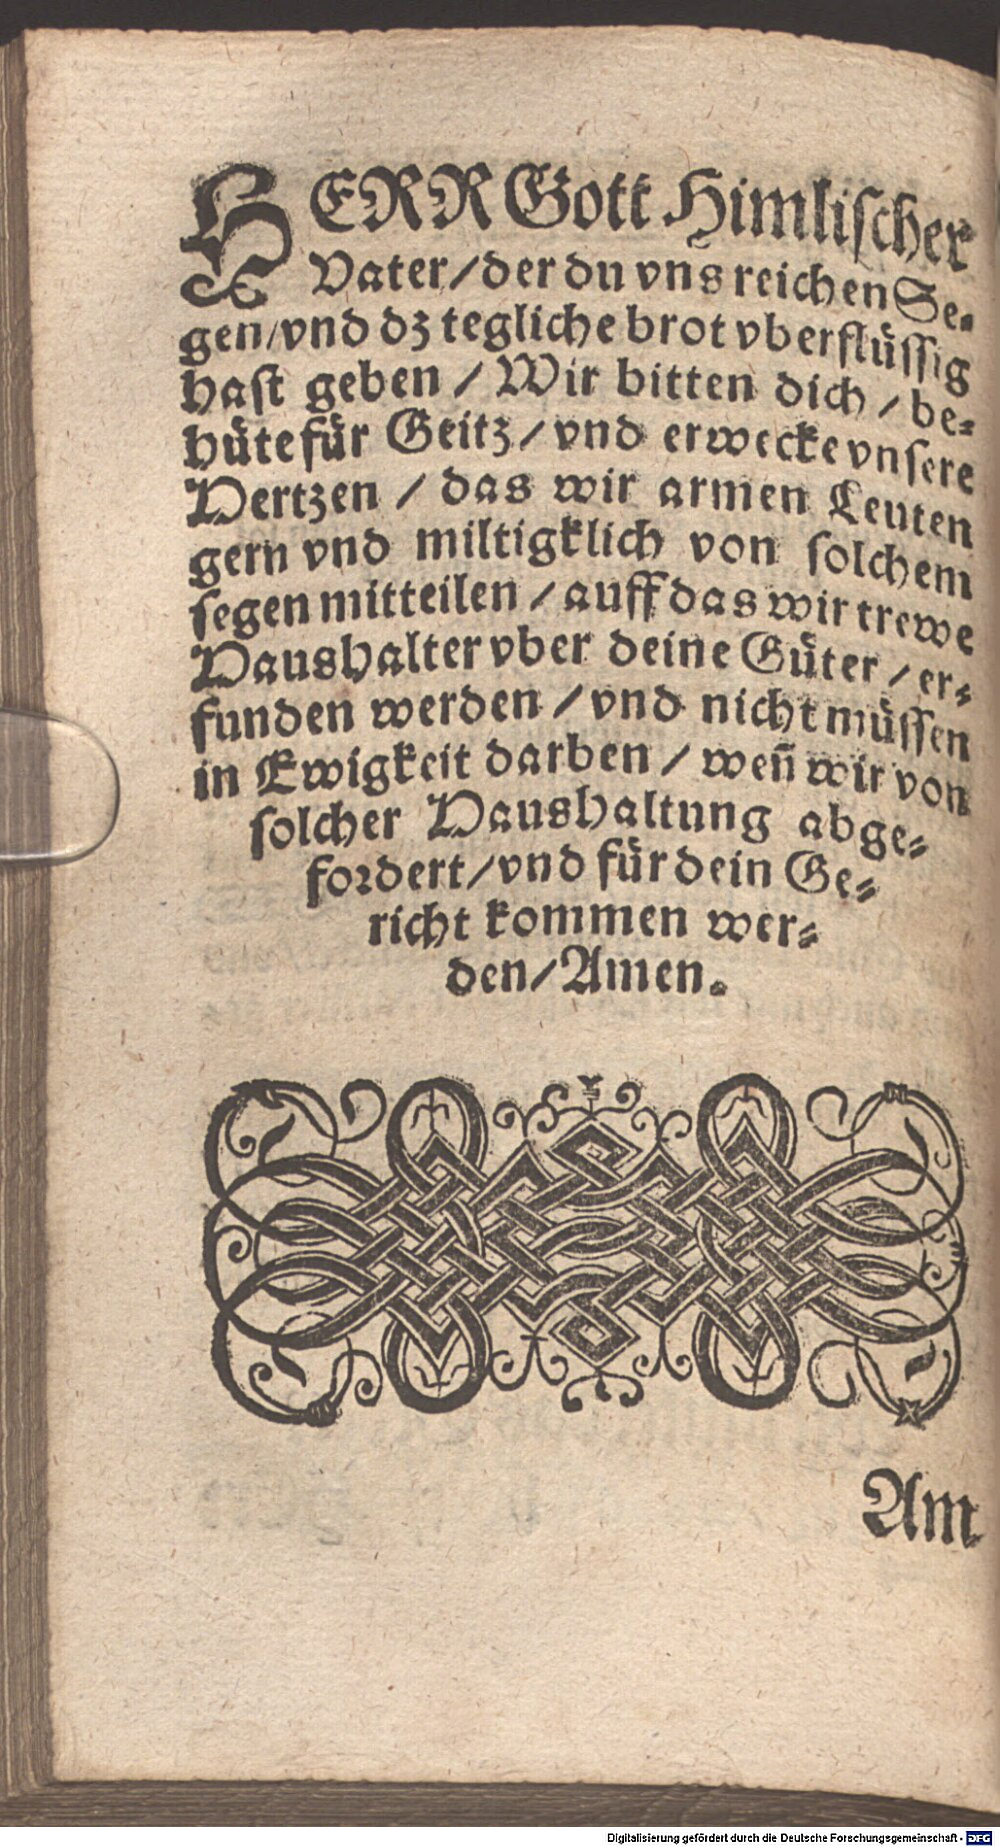 HERR Gott Himlischer
Vater / der du vns reichen Se-
gen / vnd dz tegliche brot vberflüssig
hast geben / Wir bitten dich / be-
hüte für Geitz / vnd erwecke vnsere
Hertzen / das wir armen Leuten
gern vnd miltigklich von solchem
segen mitteilen / auff das wir trewe
Haushalter vber deine Güter / er-
funden werden / vnd nicht müssen
in Ewigkeit darben / wen̄ wir von
solcher Haushaltung abge-
fordert / vnd für dein Ge-
richt kommen wer-
den / Amen.
Am
Digitalisierung gefördert durch die Deutsche Forschungsgemeinschaft - DFG